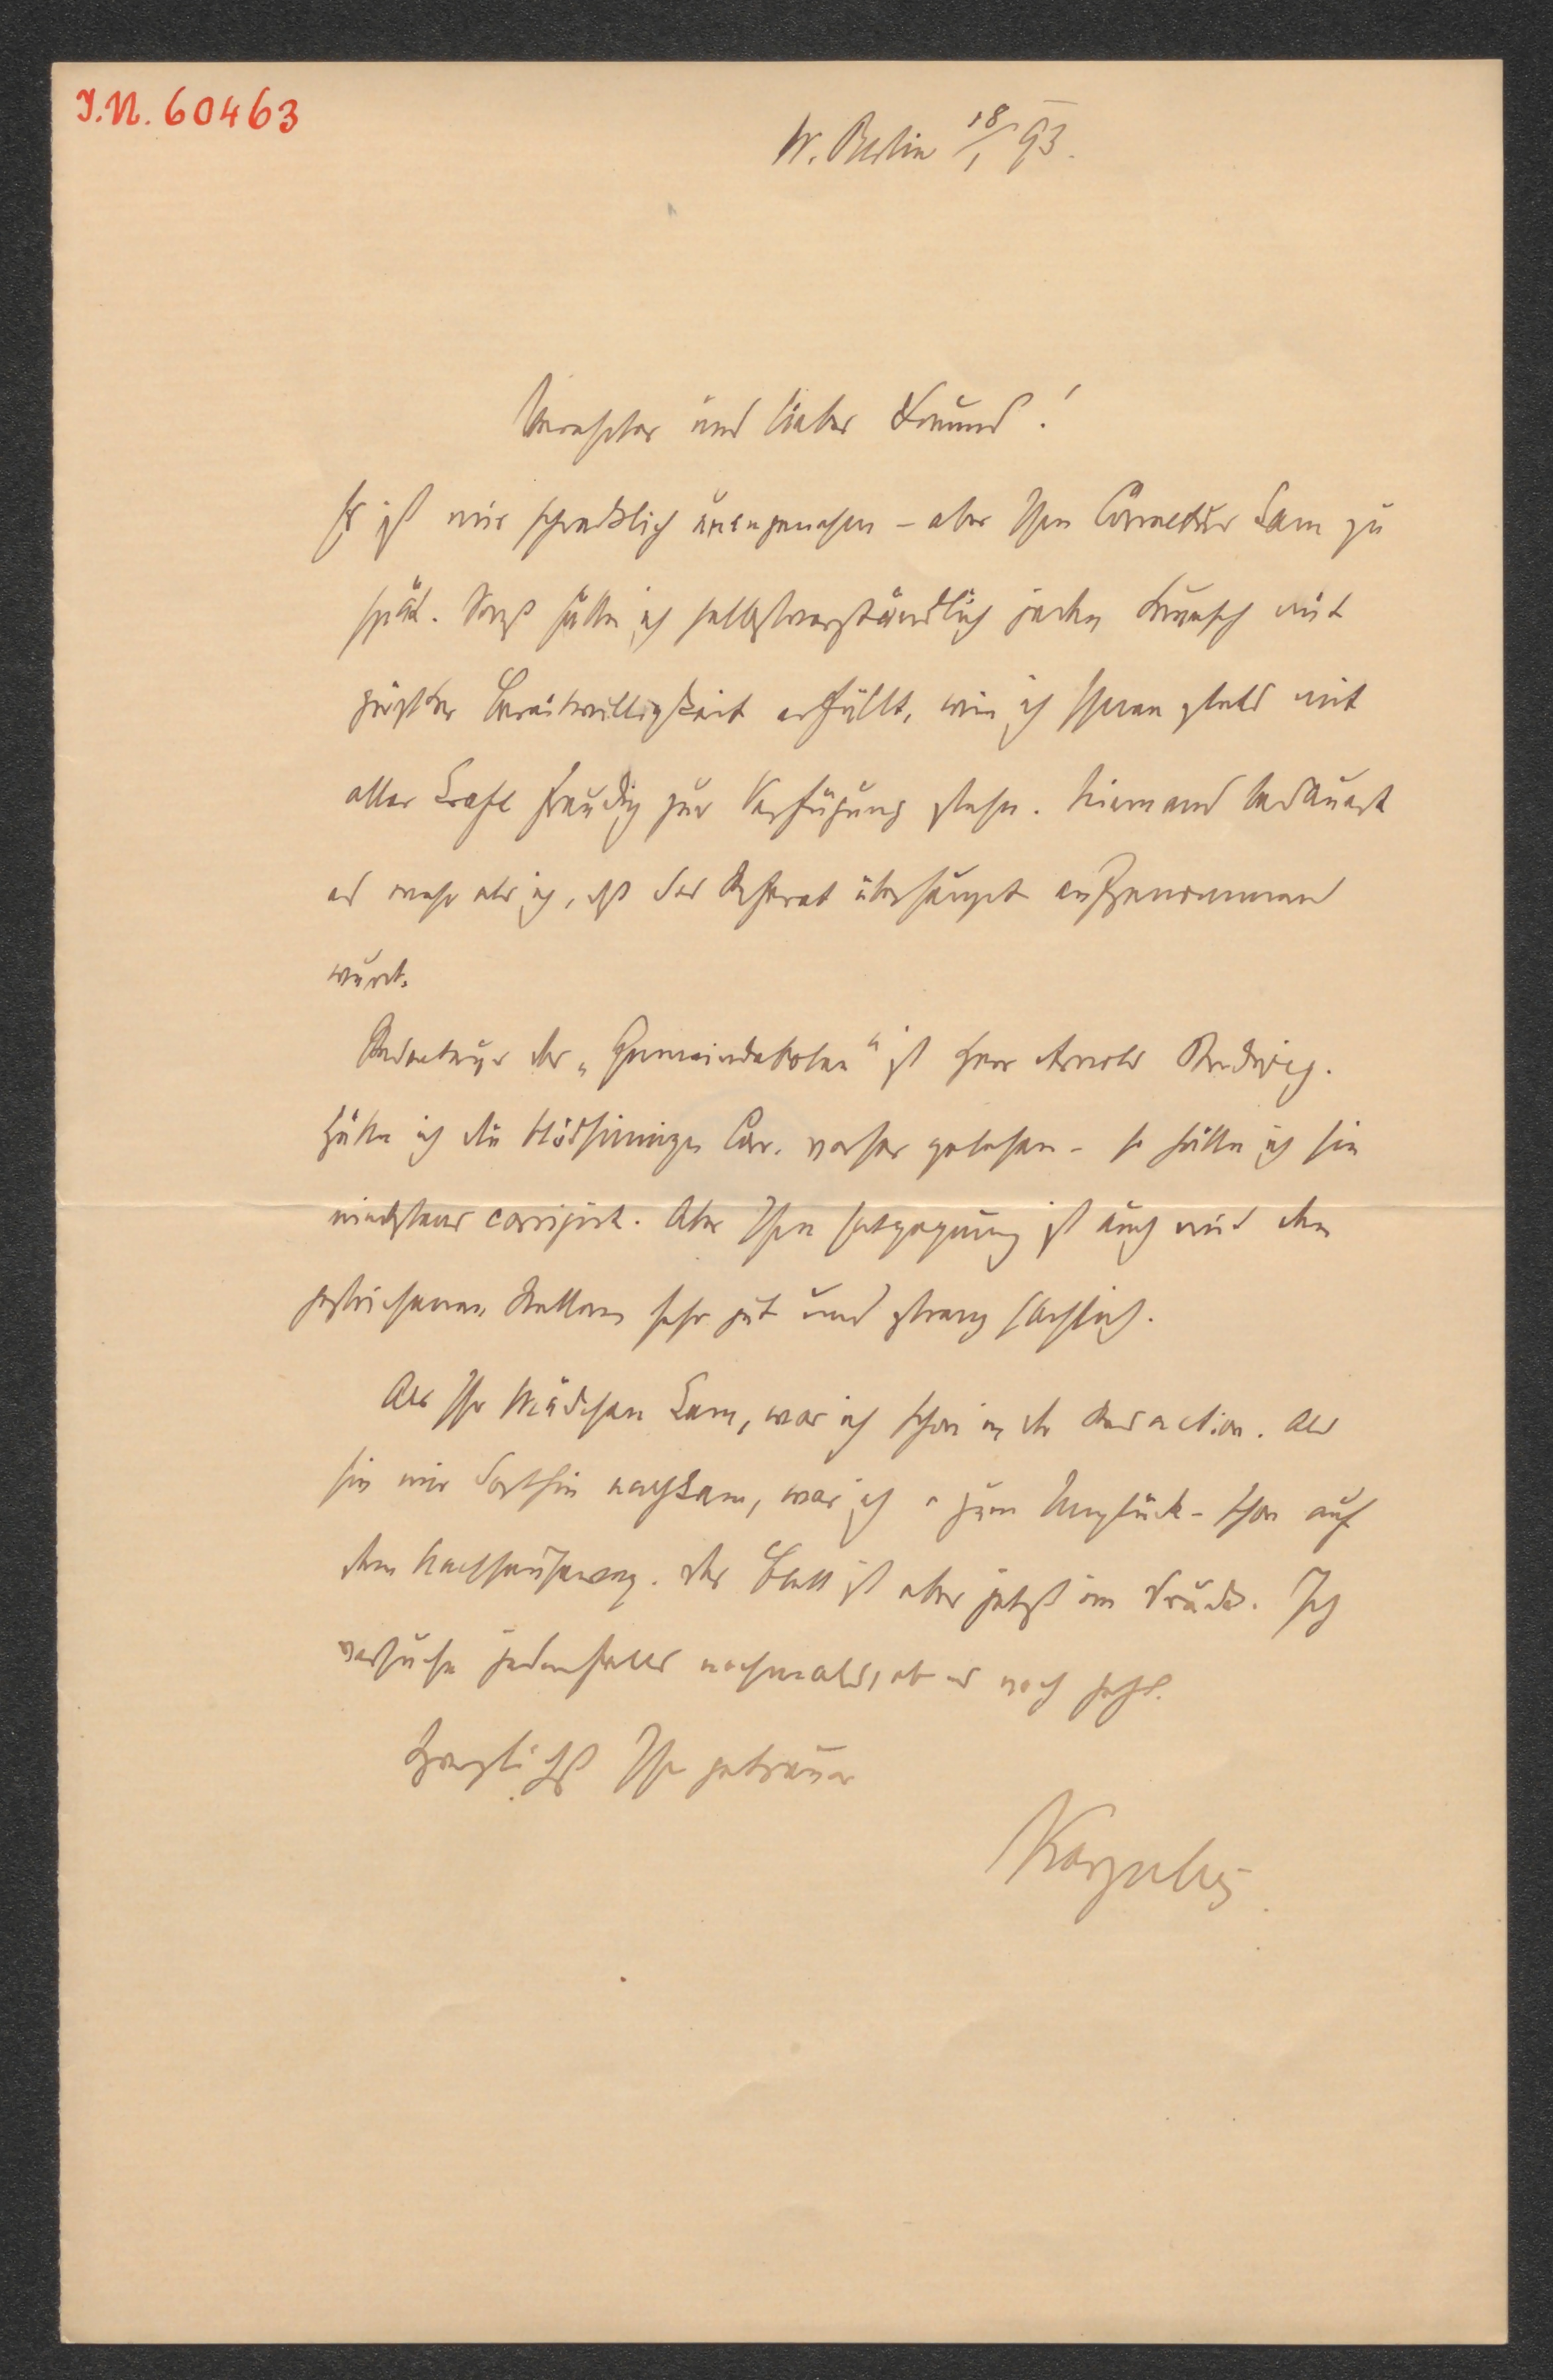 I.N. 60463
W. Berlin 18/1 93.
Verehrter und lieber Freund!
Es ist mir schrecklich unangenehm – aber Ihre Correctur kam zu
spät. Sonst hätte ich selbstverständlich jeden Wunsch mit
größter Bereitwilligkeit erfüllt, wie ich Ihnen stets mit
aller Kraft freudig zur Verfügung stehe. Niemand bedauert
es mehr als ich, daß das Referat überhaupt aufgenommen
wurde.
Redacteur des „Gemeindeboten“ ist Herr Arnold
Hätte ich die blödsinnige Corr. vorher gelesen – so hätte ich sie
mindestens corrigirt. Aber Ihre Entgegnung ist auch mit den
gestrichenen Stellen sehr gut und streng sachlich.
Als Ihr Mädchen kam, war ich schon in der Redaction. Als
sie mir dorthin nachkam, war ich – zum Unglück – schon auf
dem Nachhauseweg. Das Blatt ist aber jetzt im Druck. Ich
versuche jedenfalls nochmals, ob es noch geht.
Herzlichst Ihr getreuer
Karpeles